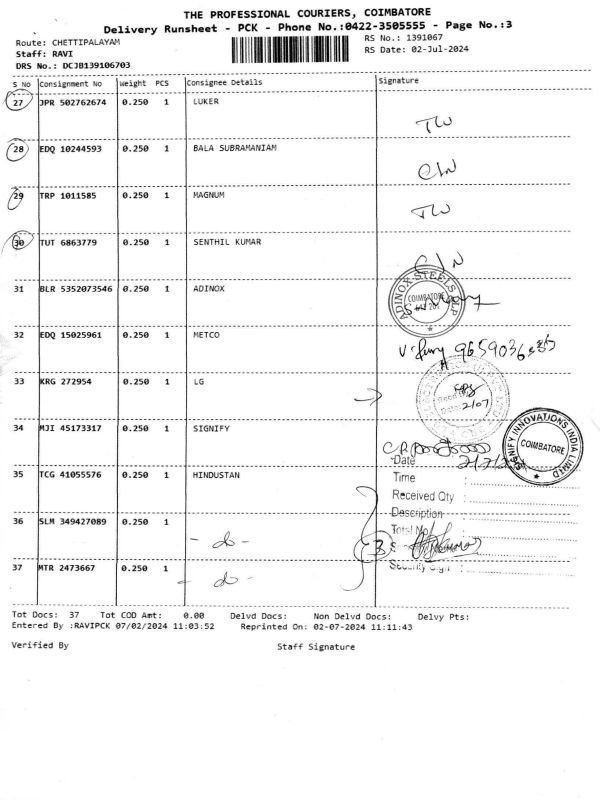 THE PROFESSIONAL COURIERS, COIMBATORE
Delivery Runsheet - PCK - Phone No.:0422-3505555 - Page No.:3
Route: CHETTIPALAYAM
RS No.: 1391067
Staff: RAVI
RS Date: 02-Jul-2024
DRS No.: DCJB139106703
S No Consignment No Weight PCS Consignee Details Signature
27 JPR 502762674 0.250 1 LUKER
28 EDQ 10244593 0.250 1 BALA SUBRAMANIAM
29 TRP 1011585 0.250 1 MAGNUM
30 TUT 6863779 0.250 1 SENTHIL KUMAR
31 BLR 5352073546 0.250 1 ADINOX
ADINOX STEELS LLP
COIMBATORE
32 EDQ 15025961 0.250 1 METCO
33 KRG 272954 0.250 1 LG
2/07
34 MJI 45173317 0.250 1 SIGNIFY
SIGNIFY INNOVATIONS INDIA LIMITED
COIMBATORE
Date
35 TCG 41055576 0.250 1 HINDUSTAN
Time :
Received Qty :
Description
36 SLM 349427089 0.250 1
Total No
37 MTR 2473667 0.250 1
Tot Docs: 37 Tot COD Amt: 0.00 Delvd Docs: Non Delvd Docs: Delvy Pts:
Entered By :RAVIPCK 07/02/2024 11:03:52 Reprinted On: 02-07-2024 11:11:43
Verified By Staff Signature